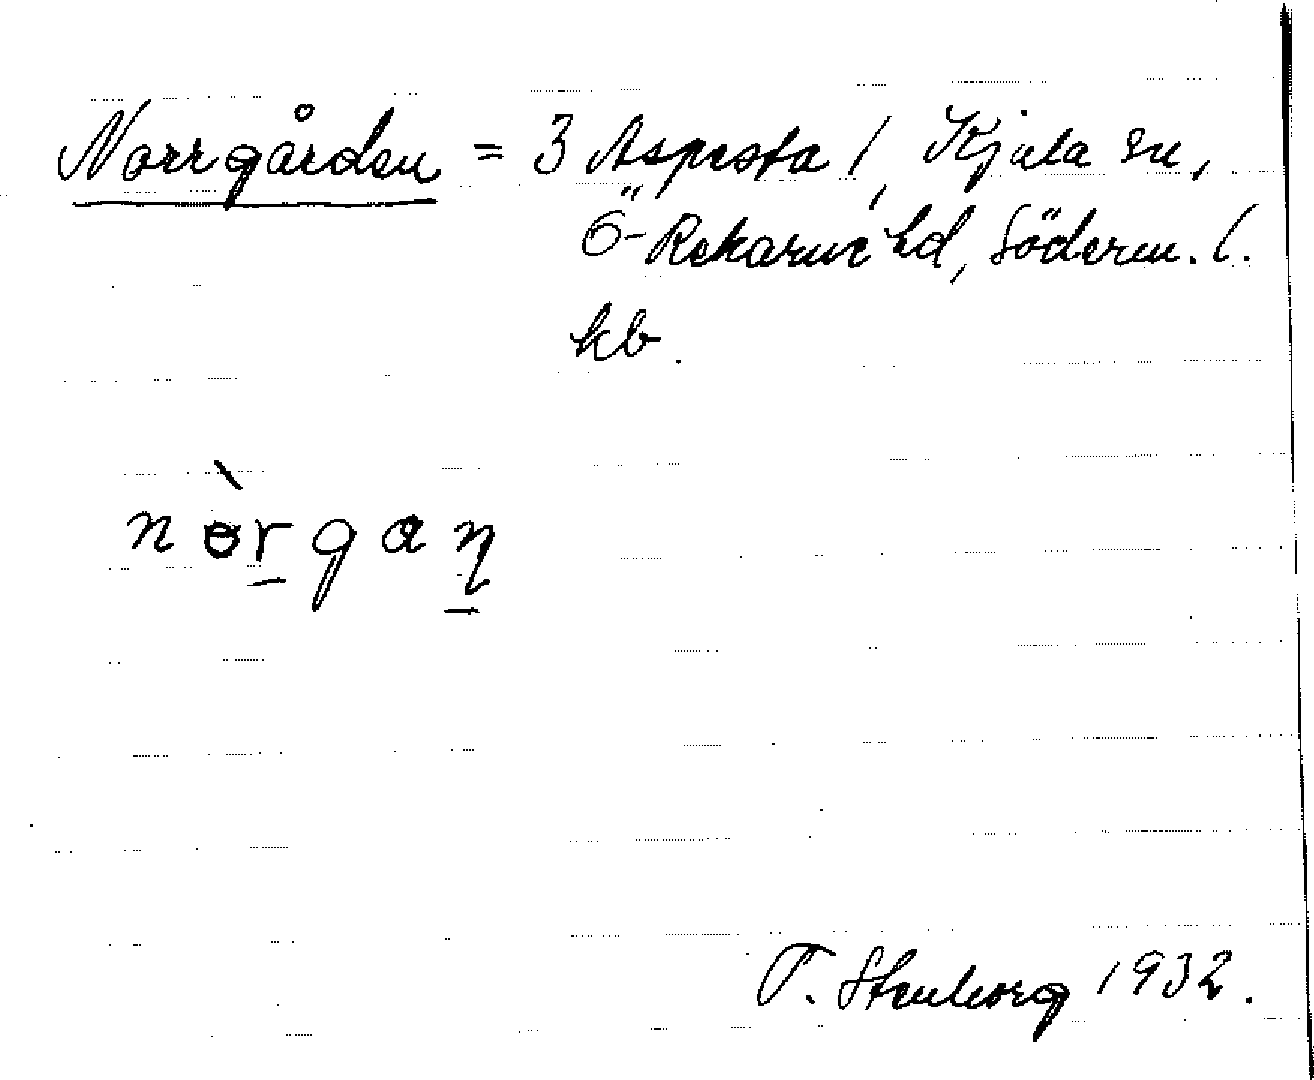 Norrgården = 3 Aspesta /, Kjula sn,
Ö-Rekarne hd, Söderm. l.
kb.
nòrgaŋ
T. Stenborg 1932.